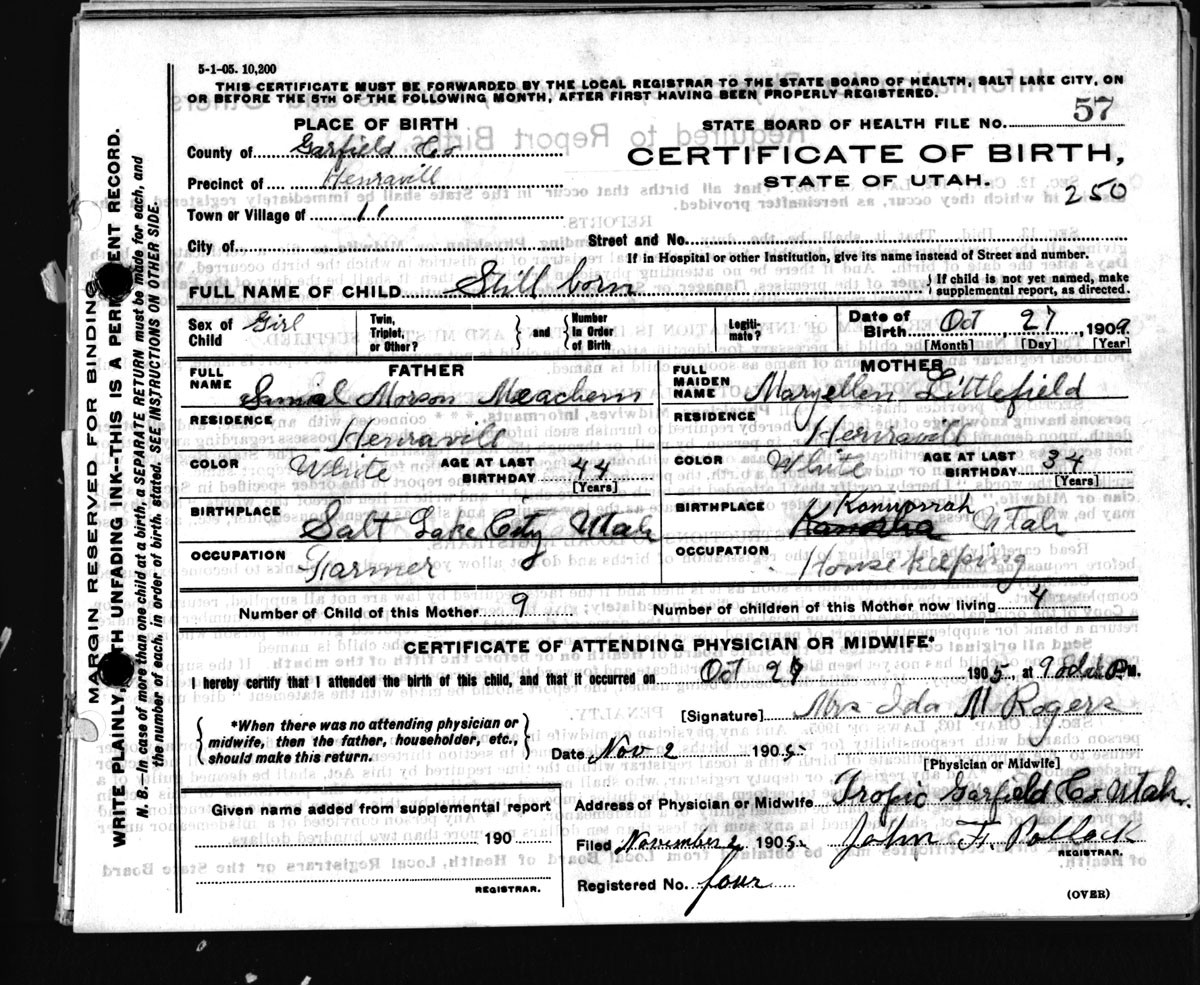 5-1-05. 10,200
THIS CERTIFICATE MUST BE FORWARDED BY THE LOCAL REGISTRAR TO THE STATE BOARD OF HEALTH, SALT LAKE CITY, ON
OR BEFORE THE 5TH OF THE FOLLOWING MONTH, AFTER FIRST HAVING BEEN PROPERLY REGISTERED.
PLACE OF BIRTH
STATE BOARD OF HEALTH FILE NO. 57
County of Garfield Co
CERTIFICATE OF BIRTH,
Precinct of Henravill
STATE OF UTAH.
250
Town or Village of 11
City of
Street and No.
If in Hospital or other Institution, give its name instead of Street and number.
FULL NAME OF CHILD Still born
{ If child is not yet named, make
supplemental report, as directed.
Sex of Child Girl
Twin, Triplet, or Other?
and
Number in Order of Birth
Legitimate?
Date of Birth Oct 27, 1909
[Month] [Day] [Year]
FATHER
MOTHER
FULL NAME Samiel Morson Meachem
FULL MAIDEN NAME Maryellen Littlefield
RESIDENCE Henravill
RESIDENCE Henravill
COLOR White AGE AT LAST BIRTHDAY 44 [Years]
COLOR White AGE AT LAST BIRTHDAY 34 [Years]
BIRTHPLACE Salt Lake City Utah
BIRTHPLACE Utah
OCCUPATION Farmer
OCCUPATION House keeping
Number of Child of this Mother 9
Number of children of this Mother now living 4
CERTIFICATE OF ATTENDING PHYSICIAN OR MIDWIFE*
I hereby certify that I attended the birth of this child, and that it occurred on Oct 27 1905, at 9 P M.
*When there was no attending physician or
midwife, then the father, householder, etc.,
should make this return.
[Signature] Mrs Ida M Rogers
Date Nov 2 1905
[Physician or Midwife]
Given name added from supplemental report
190
REGISTRAR.
Address of Physician or Midwife Tropic Garfield Co Utah.
Filed November 2 1905 John F. Pollock
REGISTRAR.
Registered No. four
(OVER)
MARGIN RESERVED FOR BINDING
WRITE PLAINLY, WITH UNFADING INK--THIS IS A PERMANENT RECORD.
N. B.—In case of more than one child at a birth, a SEPARATE RETURN must be made for each, and
the number of each, in order of birth, stated. SEE INSTRUCTIONS ON OTHER SIDE.